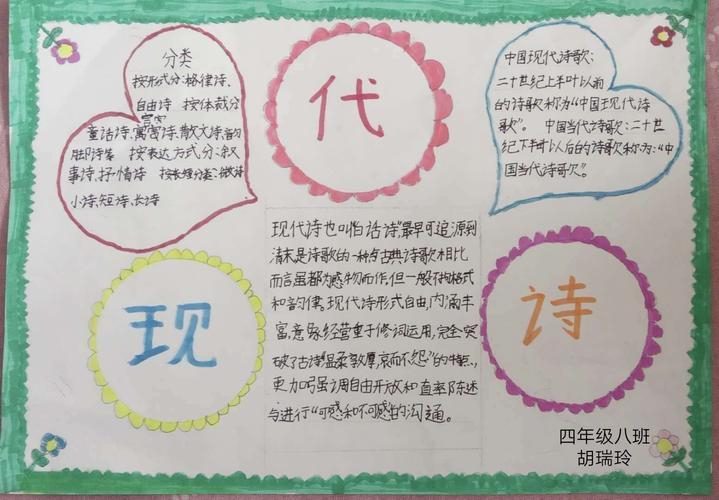 分类
按形式分:格律诗、
自由诗 按体裁分
童话诗、寓言诗、散文诗、韵
脚诗等 按表达方式分:叙
事诗、抒情诗
小诗、短诗、长诗
代
中国现代诗歌:
二十世纪上半叶以前
的诗歌称为“中国现代诗
歌”。 中国当代诗歌:二十世
纪下半叶以后的诗歌称为:“中
国当代诗歌”。
现
现代诗也叫“白话诗”最早可追源到
清末是诗歌的一种与古典诗歌相比
而言虽都为感物而作,但一般不拘格式
和韵律。现代诗形式自由,内涵丰
富,意象经营重于修词运用,完全突
破了古诗“温柔敦厚,哀而不怨”的特点,
更加强调自由开放和直率陈述
与进行“可感和不可感性的沟通。
诗
四年级八班
胡瑞玲